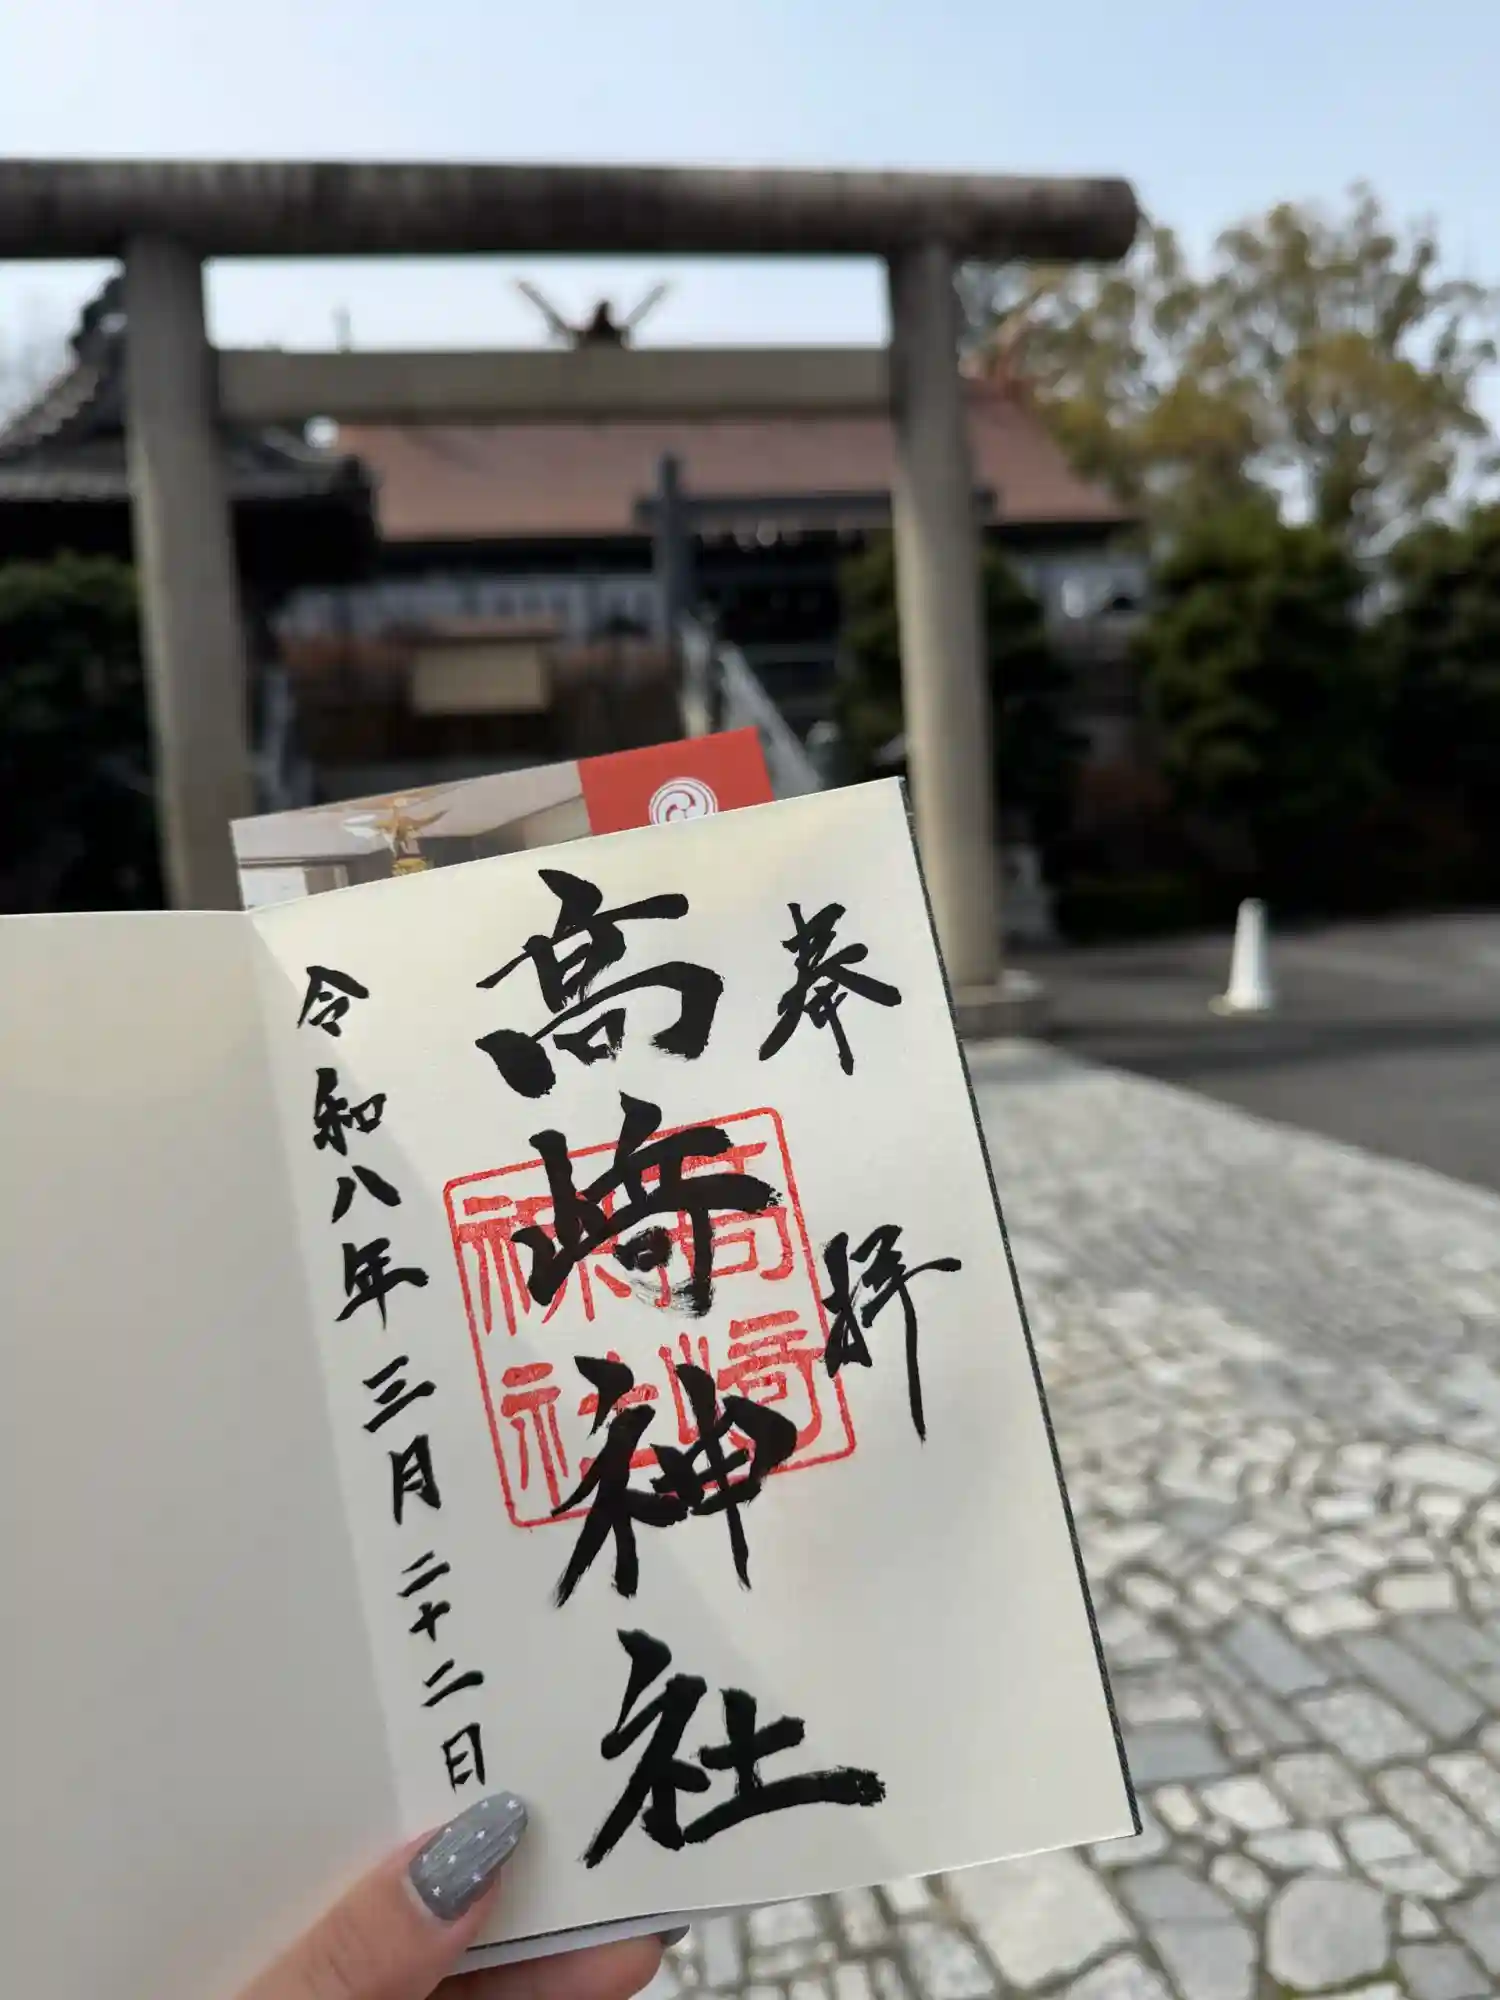 奉拝
高崎神社
高崎神社
令和八年三月二十二日